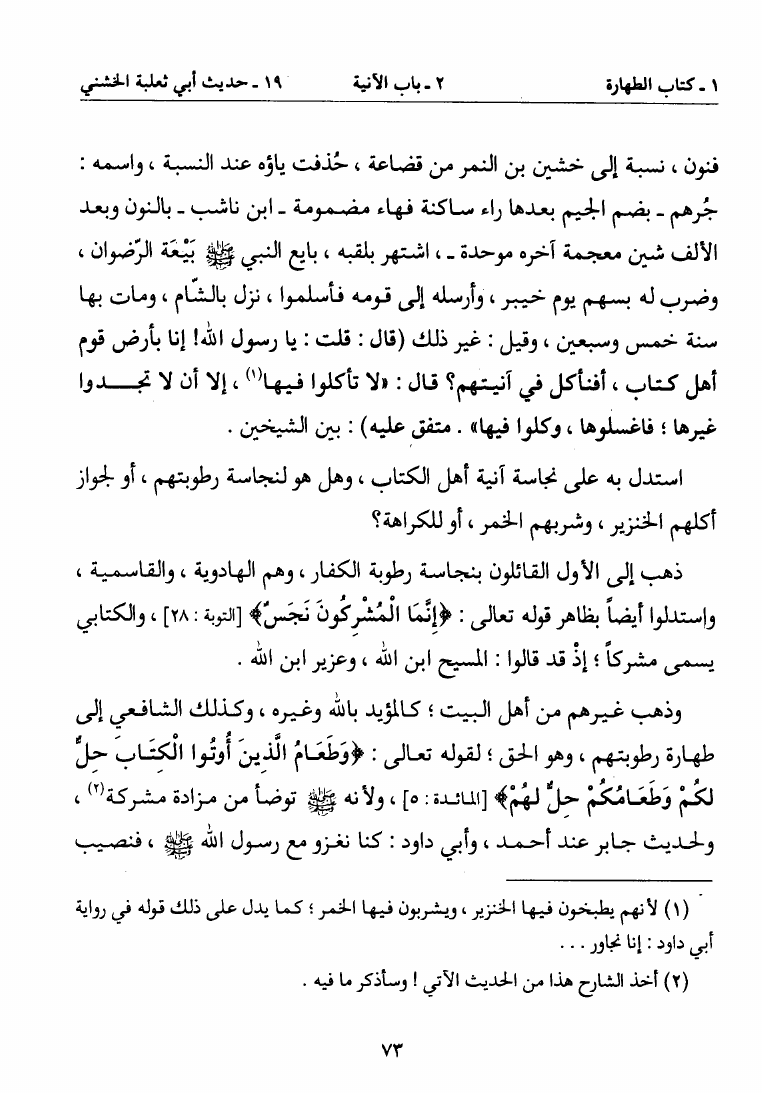 ١ ـ كتاب الطهارة ٢ ـ باب الآنية ١٩ ـ حديث أبي ثعلبة الخشني
فنون ، نسبة إلى خشين بن النمر من قضاعة ، حُذفت ياؤه عند النسبة ، واسمه :
جُرهم ـ بضم الجيم بعدها راء ساكنة فهاء مضمومة ـ ابن ناشب ـ بالنون وبعد
الألف شين معجمة آخره موحدة ـ ، اشتهر بلقبه ، بايع النبي ﷺ بَيْعَة الرِّضوان ،
وضرب له بسهم يوم خيبر ، وأرسله إلى قومه فأسلموا ، نزل بالشّام ، ومات بها
سنة خمس وسبعين ، وقيل : غير ذلك (قال : قلت : يا رسول الله! إنا بأرض قوم
أهل كتاب ، أفنأكل في آنيتهم؟ قال : «لا تأكلوا فيها(١) ، إلا أن لا تجـــدوا
غيرها ؛ فاغسلوها ، وكلوا فيها» . متفق عليه) : بين الشيخين .
استدل به على نجاسة آنية أهل الكتاب ، وهل هو لنجاسة رطوبتهم ، أو لجواز
أكلهم الخنزير ، وشربهم الخمر ، أو للكراهة؟
ذهب إلى الأول القائلون بنجاسة رطوبة الكفار ، وهم الهادوية ، والقاسمية ،
واستدلوا أيضاً بظاهر قوله تعالى : ﴿إِنَّمَا الْمُشْرِكُونَ نَجَسٌ﴾ [التوبة : ٢٨] ، والكتابي
يسمى مشركاً ؛ إذْ قد قالوا : المسيح ابن الله ، وعزير ابن الله .
وذهب غيرهم من أهل البيت ؛ كالمؤيد بالله وغيره ، وكذلك الشافعي إلى
طهارة رطوبتهم ، وهو الحق ؛ لقوله تعالى : ﴿وَطَعَامُ الَّذِينَ أُوتُوا الْكِتَابَ حِلٌّ
لَكُمْ وَطَعَامُكُمْ حِلٌّ لَهُمْ﴾ [المائدة : ٥] ، ولأنه ﷺ توضأ من مزادة مشركة(٢) ،
ولحديث جابر عند أحمد ، وأبي داود : كنا نغزو مع رسول الله ﷺ ، فنصيب
(١) لأنهم يطبخون فيها الخنزير ، ويشربون فيها الخمر ؛ كما يدل على ذلك قوله في رواية
أبي داود : إنا نجاور ...
(٢) أخذ الشارح هذا من الحديث الآتي ! وسأذكر ما فيه .
٧٣